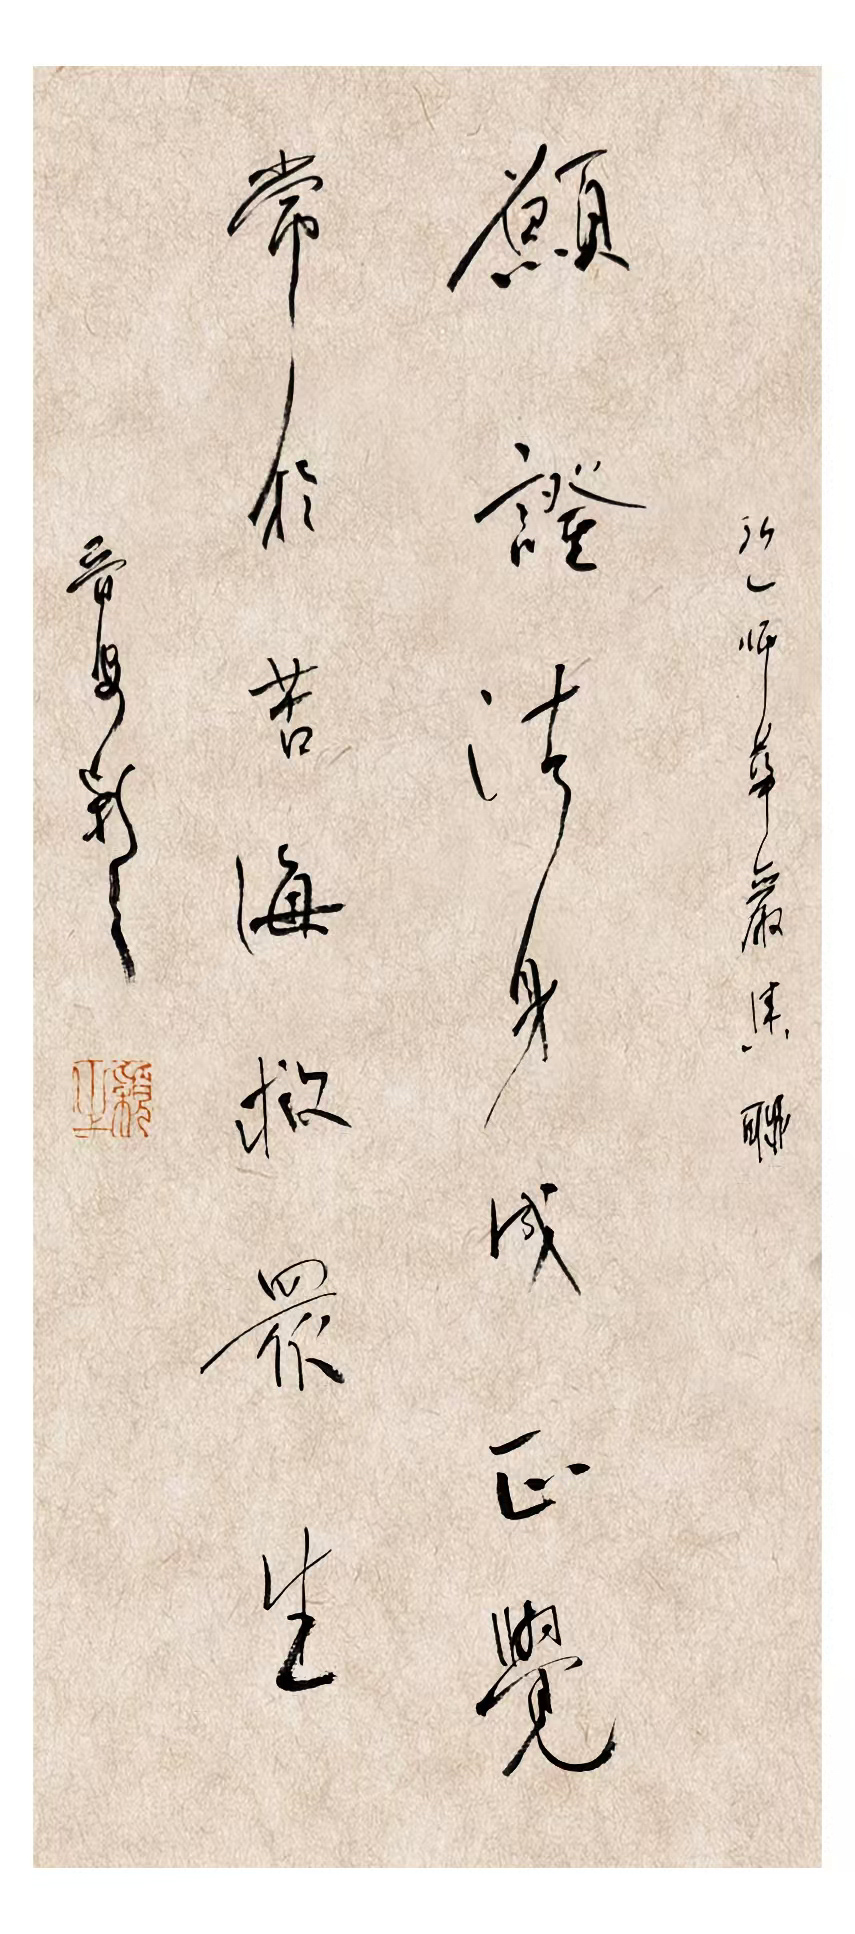 弘一師華嚴集聯
願證法身成正覺
常於苦海救眾生